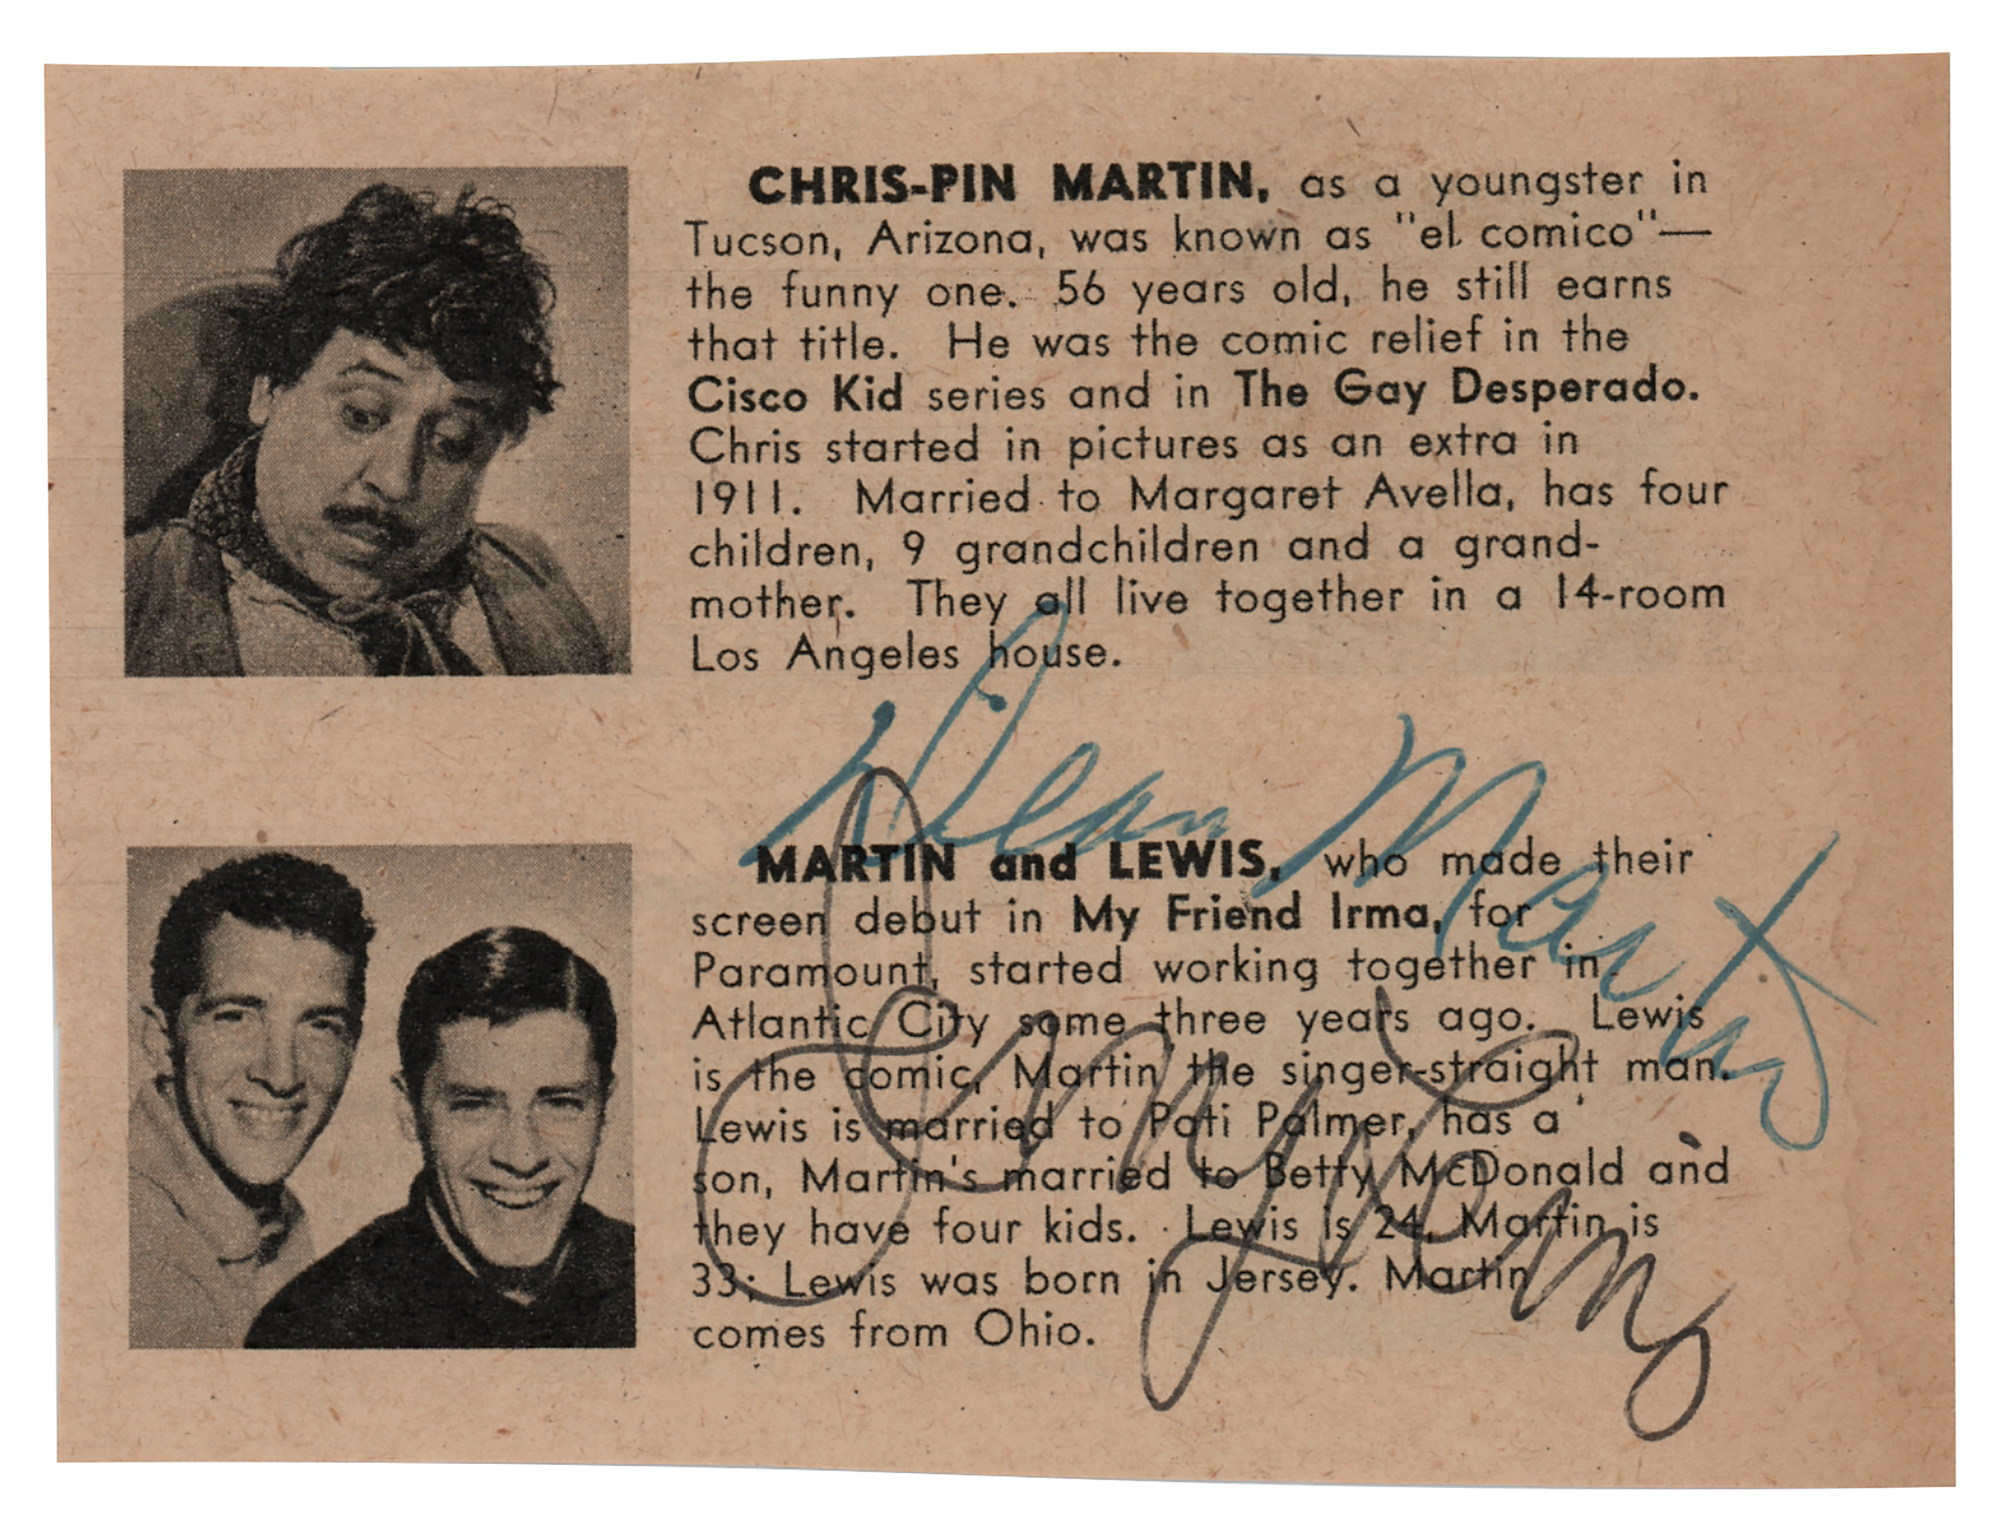 CHRIS-PIN MARTIN, as a youngster in
Tucson, Arizona, was known as "el comico"—
the funny one. 56 years old, he still earns
that title. He was the comic relief in the
Cisco Kid series and in The Gay Desperado.
Chris started in pictures as an extra in
1911. Married to Margaret Avella, has four
children, 9 grandchildren and a grand-
mother. They all live together in a 14-room
Los Angeles house.
Dean Martin
MARTIN and LEWIS, who made their
screen debut in My Friend Irma, for
Paramount, started working together in
Atlantic City some three years ago. Lewis
is the comic, Martin the singer-straight man.
Lewis is married to Pati Palmer, has a
son, Martin's married to Betty McDonald and
they have four kids. Lewis is 24, Martin is
33; Lewis was born in Jersey. Martin
comes from Ohio.
Jerry Lewis